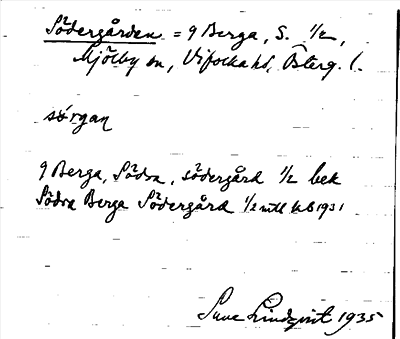 Södergården = 9 Berga, S. 1/2,
Mjölby sn, Vifolka hd, Österg. l.
sørgan
9 Berga, Södra, södergård 1/2 bek
Södra Berga Södergård 1/2 mtl 1931
Sune Lindqvist 1935